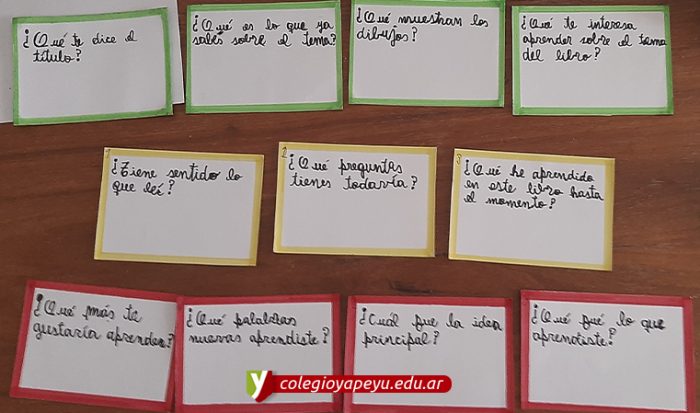 ¿Qué te dice el
título?
¿Qué es lo que ya
sabés sobre el tema?
¿Qué muestran los
dibujos?
¿Qué te interesa
aprender sobre el tema
del libro?
1
¿Tiene sentido lo
que leí?
2
¿Qué preguntas
tienes todavía?
3
¿Qué he aprendido
en este libro hasta
el momento?
¿Qué más te
gustaría aprender?
¿Qué palabras
nuevas aprendiste?
¿Cuál fue la idea
principal?
¿Qué fué lo que
aprendiste?
colegioyapeyu.edu.ar